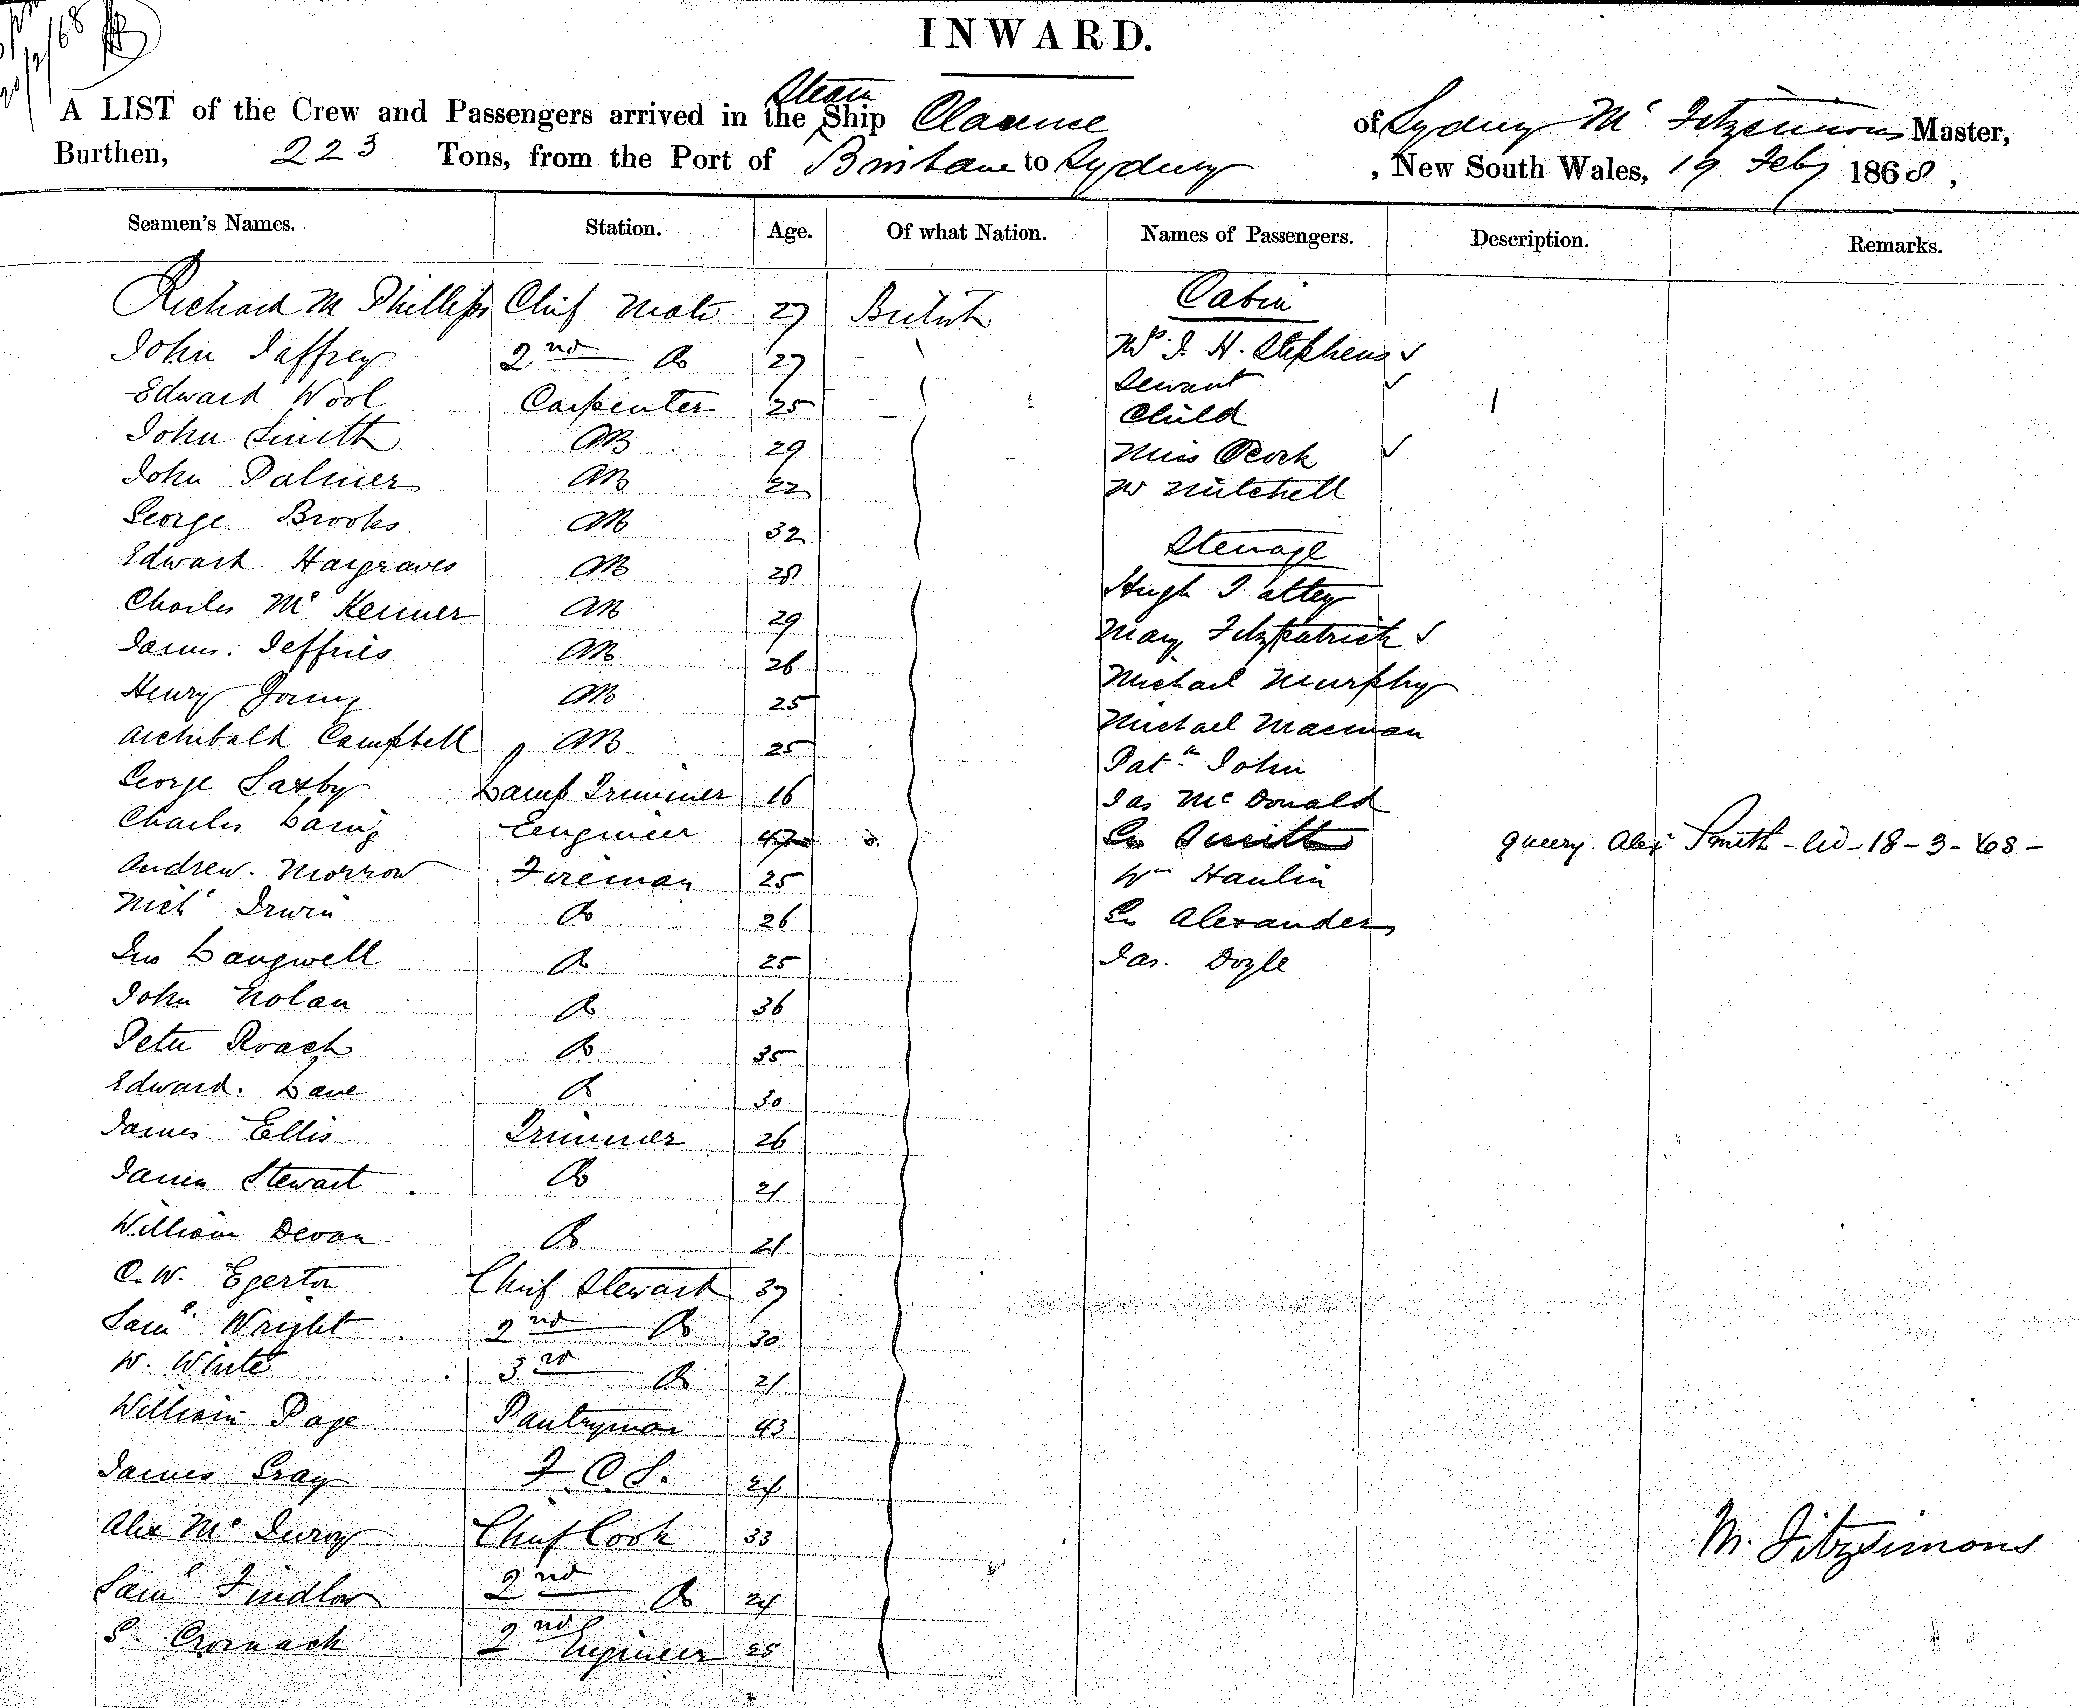 INWARD.
Steam
A LIST of the Crew and Passengers arrived in the Ship Clarence of Sydney Mc Fitzsimons Master,
Burthen, 223 Tons, from the Port of Brisbane to Sydney , New South Wales, 19 Feby 1868 ,
Seamen's Names. Station. Age. Of what Nation. Names of Passengers. Description. Remarks.
Richard M Phillips Chief Mate 27 British Cabin
John Jaffrey 2nd Do 27 Mrs J. H. Stephens
Edward Wool Carpenter 25 Servant
Child
John Smith AB 29 Miss Peock
John Palmer AB 22 Mr Mitchell
George Brooks AB 32 Steerage
Edward Hargraves AB 28 Hugh
Charles Mc Kenner AB 29 Mary Fitzpatrick
James Jeffries AB 26 Michael Murphy
Henry Young AB 25 Michael
Archibald Campbell AB 25 Patk John
George Saxby Lamp Trimmer 16 Jas McDonald
Charles Laing Engineer 47 Smith query Alexr Smith 18-3-68-
Andrew Morrow Fireman 25 Wm Hanlin
Nichs Irwin Do 26 Alexander
Jno Langwell Do 25 Jas. Doyle
John Nolan Do 36
Peter Roach Do 35
Edward. Lane Do 30
James Ellis Trimmer 26
James Stewart Do 21
William Devan Do 21
C. W. Egerton Chief Steward 37
Saml Wright 2nd Do 30
W. White 3rd Do 21
William Page Pantryman 43
James Gray F. C. S. 24
Alex Mc Chief Cook 33
M. Fitzsimons
Saml Findlar 2nd Do 24
S. Cromack 2nd Engineer 25